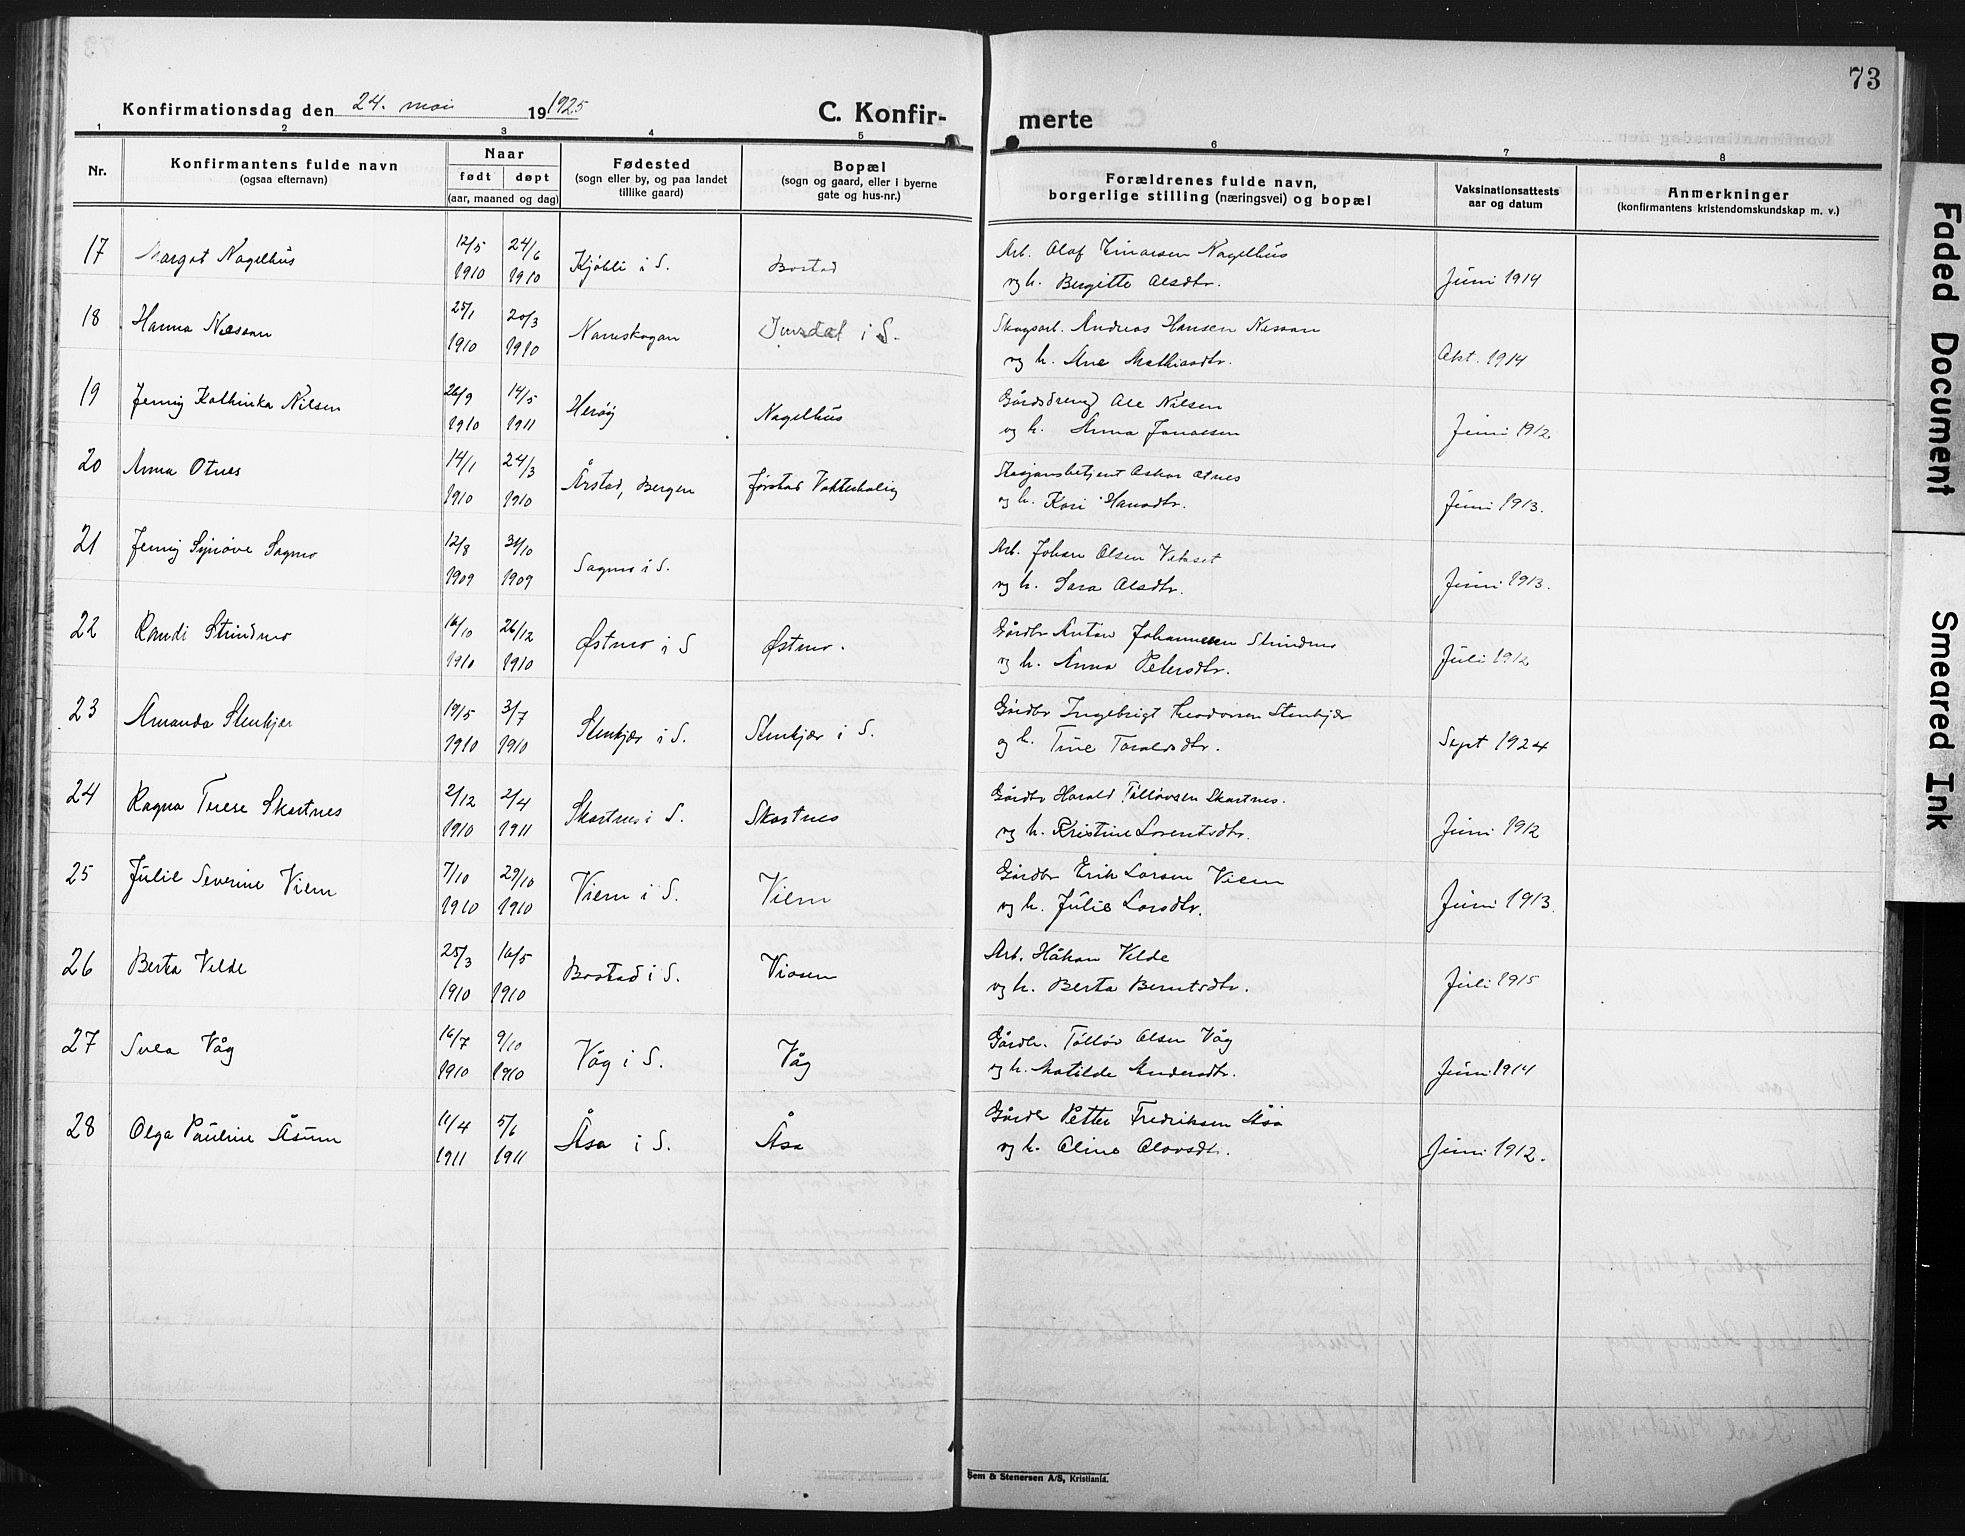 73
Konfirmationsdag den 24. mai 1925
C. Konfirmerte
1 2 3 4 5 6 7 8
Nr.
Konfirmantens fulde navn
(ogsaa efternavn)
Naar
født døpt
(aar, maaned og dag)
Fødested
(sogn eller by, og paa landet
tillike gaard)
Bopæl
(sogn og gaard, eller i byerne
gate og hus-nr.)
Forældrenes fulde navn,
borgerlige stilling (næringsvei) og bopæl
Vaksinationsattests
aar og datum
Anmerkninger
(konfirmantens kristendomskundskap m. v.)
17 Margot Nagelhus 12/5 1910 24/6 1910 Kjøhli i S. Bostad Arb. Olaf Einarsen Nagelhus
og h. Bergitte Olsdtr. Juni 1914
18 Hanna Nessan 25/1 1910 20/3 1910 Namskogan Imsdal i S. Skogsarb. Andreas Hansen Nessan
og h. Ane Mathiasdtr. Okt. 1914
19 Jenny Kathinka Nilsen 26/9 1910 14/5 1911 Herøy Nagelhus Gårdsdreng Ole Nilsen
og h. Anna Jonassen Juni 1912
20 Anna Otnes 14/1 1910 24/3 1910 Årstad, Bergen Førstad Vokterbolig Stasjonsbetjent Oskar Otnes
og h. Kari Hansdtr. Juni 1913.
21 Jenny Synøve Sagmo 12/8 1909 31/10 1909 Sagmo i S. Arb. Johan Olsen Vekset
og h. Sara Olsdtr. Juni 1913.
22 Randi Strindmo 16/10 1910 26/12 1910 Østmo i S Østmo. Gårdbr Anton Johannessen Strindmo
og h. Anna Petersdtr. Juli 1912
23 Amanda Stenkjær 19/5 1910 3/7 1910 Stenkjær i S. Stenkjær i S. Gårdbr Ingebrigt Teodorsen Stenkjær
og h. Tine Toraldsdtr. Sept 1924
24 Ragna Terese Skartnes 2/12 1910 2/4 1911 Skartnes i S. Skartnes Gårdbr Harald Tølløvsen Skartnes.
og h. Kristine Lorentsdtr. Juni 1912
25 Julie Severine Viem 7/10 1910 29/10 1910 Viem i S. Viem Gårdbr Erik Larsen Viem
og h. Julie Larsdtr. Juni 1913.
26 Berta Velde 25/3 1910 16/5 1910 Bostad i S. Viosen Arb. Håkon Velde
og h. Berta Berntsdtr. Juli 1915
27 Svea Våg 16/7 1910 9/10 1910 Våg i S. Våg Gårdb. Tølløv Olsen Våg
og h. Matilde Andersdtr. Juni 1914
28 Olga Pauline Åsum 11/4 1911 5/6 1911 Åsa i S. Åsa Gårdb Petter Fredriksen Åsa
og h. Oline Olavsdtr. Juni 1912.
Sem & Stenersen A/S, Kristiania.
Faded Document
Smeared Ink